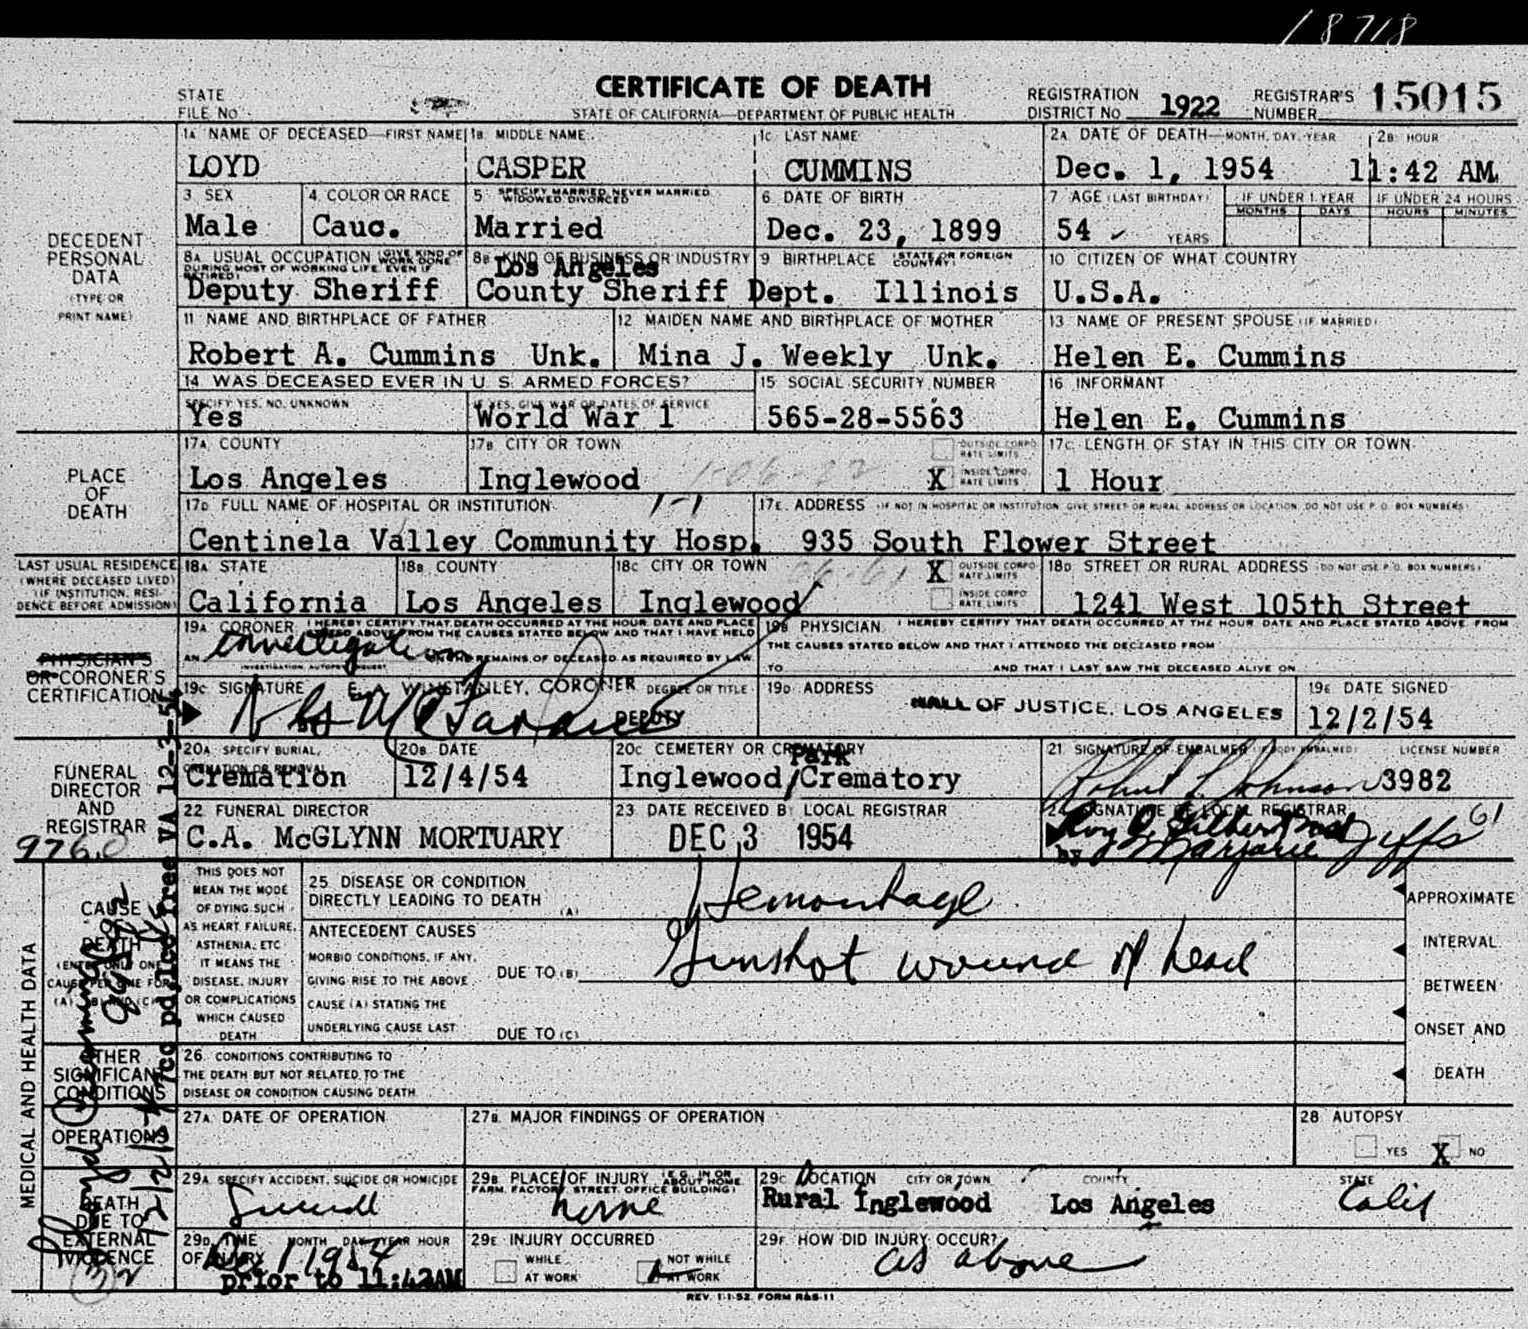 18718
CERTIFICATE OF DEATH
STATE OF CALIFORNIA—DEPARTMENT OF PUBLIC HEALTH
STATE FILE NO
REGISTRATION DISTRICT NO 1922 REGISTRAR'S NUMBER 15015
DECEDENT PERSONAL DATA (TYPE OR PRINT NAME)
1A NAME OF DECEASED—FIRST NAME 1B MIDDLE NAME 1C LAST NAME 2A DATE OF DEATH—MONTH, DAY, YEAR 2B HOUR
LOYD CASPER CUMMINS Dec. 1, 1954 11:42 AM.
3 SEX 4 COLOR OR RACE 5 SPECIFY MARRIED, NEVER MARRIED, WIDOWED, DIVORCED 6 DATE OF BIRTH 7 AGE (LAST BIRTHDAY) IF UNDER 1 YEAR IF UNDER 24 HOURS
MONTHS DAYS HOURS MINUTES
Male Cauc. Married Dec. 23, 1899 54 YEARS
8A USUAL OCCUPATION (GIVE KIND OF WORK DONE DURING MOST OF WORKING LIFE, EVEN IF RETIRED) 8B KIND OF BUSINESS OR INDUSTRY 9 BIRTHPLACE (STATE OR FOREIGN COUNTRY) 10 CITIZEN OF WHAT COUNTRY
Deputy Sheriff Los Angeles County Sheriff Dept. Illinois U.S.A.
11 NAME AND BIRTHPLACE OF FATHER 12 MAIDEN NAME AND BIRTHPLACE OF MOTHER 13 NAME OF PRESENT SPOUSE (IF MARRIED)
Robert A. Cummins Unk. Mina J. Weekly Unk. Helen E. Cummins
14 WAS DECEASED EVER IN U. S. ARMED FORCES? 15 SOCIAL SECURITY NUMBER 16 INFORMANT
SPECIFY YES, NO, UNKNOWN IF YES, GIVE WAR OR DATES OF SERVICE
Yes World War 1 565-28-5563 Helen E. Cummins
PLACE OF DEATH
17A COUNTY 17B CITY OR TOWN OUTSIDE CORPORATE LIMITS X INSIDE CORPORATE LIMITS 17C LENGTH OF STAY IN THIS CITY OR TOWN
Los Angeles Inglewood 1 Hour
17D FULL NAME OF HOSPITAL OR INSTITUTION 17E ADDRESS (IF NOT IN HOSPITAL OR INSTITUTION, GIVE STREET OR RURAL ADDRESS OR LOCATION. DO NOT USE P. O. BOX NUMBERS)
Centinela Valley Community Hosp. 935 South Flower Street
LAST USUAL RESIDENCE (WHERE DECEASED LIVED) (IF INSTITUTION, RESIDENCE BEFORE ADMISSION)
18A STATE 18B COUNTY 18C CITY OR TOWN X OUTSIDE CORPORATE LIMITS INSIDE CORPORATE LIMITS 18D STREET OR RURAL ADDRESS (DO NOT USE P. O. BOX NUMBERS)
California Los Angeles Inglewood 1241 West 105th Street
PHYSICIAN'S OR CORONER'S CERTIFICATION
19A CORONER I HEREBY CERTIFY THAT DEATH OCCURRED AT THE HOUR, DATE AND PLACE STATED ABOVE FROM THE CAUSES STATED BELOW AND THAT I HAVE HELD
AN Investigation ON THE REMAINS OF DECEASED AS REQUIRED BY LAW
INVESTIGATION, AUTOPSY, INQUEST
19B PHYSICIAN I HEREBY CERTIFY THAT DEATH OCCURRED AT THE HOUR, DATE AND PLACE STATED ABOVE FROM
THE CAUSES STATED BELOW AND THAT I ATTENDED THE DECEASED FROM
TO AND THAT I LAST SAW THE DECEASED ALIVE ON
19C SIGNATURE WINSTANLEY, CORONER DEGREE OR TITLE 19D ADDRESS 19E DATE SIGNED
DEPUTY HALL OF JUSTICE, LOS ANGELES 12/2/54
FUNERAL DIRECTOR AND REGISTRAR
20A SPECIFY BURIAL, CREMATION OR REMOVAL 20B DATE 20C CEMETERY OR CREMATORY 21 SIGNATURE OF EMBALMER (IF BODY EMBALMED) LICENSE NUMBER
Cremation 12/4/54 Inglewood Park/Crematory Robert L Johnson 3982
22 FUNERAL DIRECTOR 23 DATE RECEIVED BY LOCAL REGISTRAR 24 SIGNATURE OF LOCAL REGISTRAR
C.A. McGLYNN MORTUARY DEC 3 1954 Roy O. Gilbert by Marjorie Jeffs 61
MEDICAL AND HEALTH DATA
CAUSE OF DEATH (ENTER ONLY ONE CAUSE PER LINE FOR (A), (B) AND (C))
THIS DOES NOT MEAN THE MODE OF DYING SUCH AS HEART FAILURE, ASTHENIA, ETC. IT MEANS THE DISEASE, INJURY OR COMPLICATIONS WHICH CAUSED DEATH
25 DISEASE OR CONDITION DIRECTLY LEADING TO DEATH (A) Hemorrhage
ANTECEDENT CAUSES
MORBID CONDITIONS, IF ANY, GIVING RISE TO THE ABOVE CAUSE (A) STATING THE UNDERLYING CAUSE LAST
DUE TO (B) Gunshot wound of head
DUE TO (C)
APPROXIMATE INTERVAL BETWEEN ONSET AND DEATH
OTHER SIGNIFICANT CONDITIONS
26 CONDITIONS CONTRIBUTING TO THE DEATH BUT NOT RELATED TO THE DISEASE OR CONDITION CAUSING DEATH
OPERATIONS
27A DATE OF OPERATION 27B MAJOR FINDINGS OF OPERATION 28 AUTOPSY
YES X NO
DEATH DUE TO EXTERNAL VIOLENCE
29A SPECIFY ACCIDENT, SUICIDE OR HOMICIDE 29B PLACE OF INJURY (E.G. IN OR ABOUT HOME, FARM, FACTORY, STREET, OFFICE BUILDING) 29C LOCATION CITY OR TOWN COUNTY STATE
Suicide home Rural Inglewood Los Angeles Calif
29D TIME OF INJURY MONTH DAY YEAR HOUR 29E INJURY OCCURRED 29F HOW DID INJURY OCCUR?
Dec 1 1954 WHILE AT WORK NOT WHILE AT WORK as above
prior to 11:42AM
REV. 1-1-52 FORM R&S-11